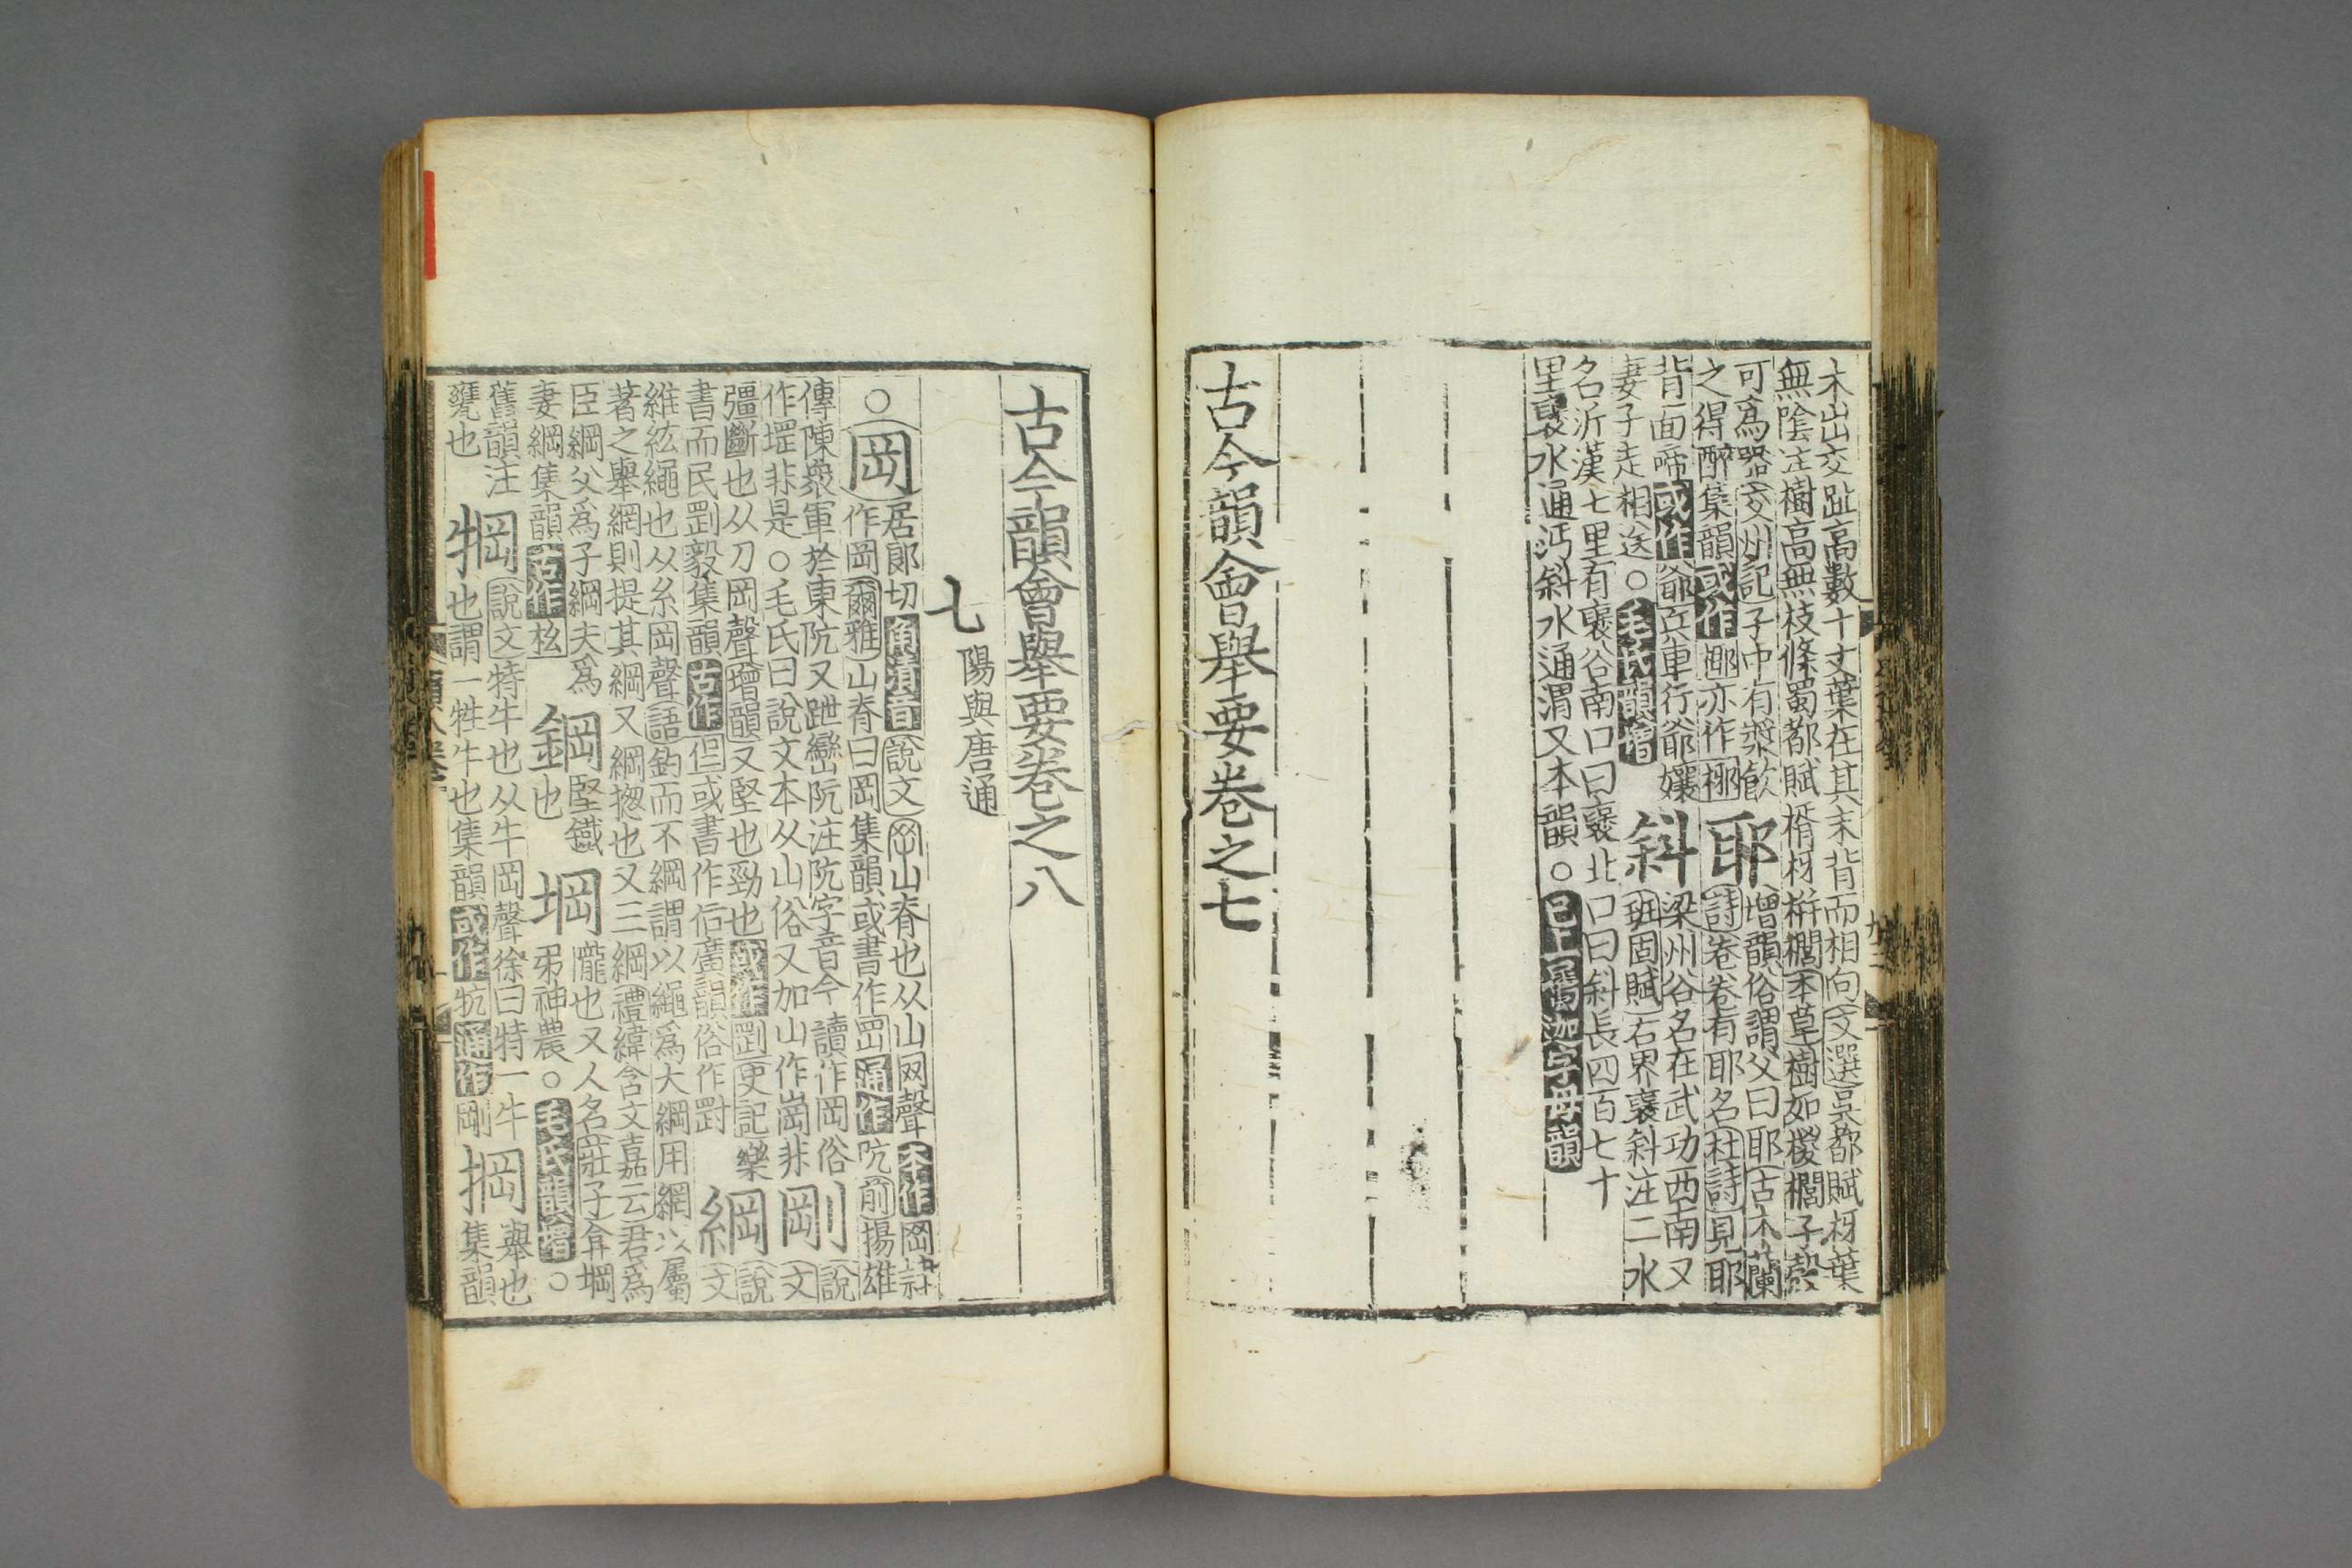 木出交趾高數十丈葉在其末背而相向文選吳都賦枒葉
無陰注樹高無枝條蜀都賦楈枒栟櫚本草樹如椶櫚子殼
可爲器交州記子中有漿飮
之得醉集韻或作梛亦作㭨
耶
增韻俗謂父曰耶古木蘭
詩卷卷有耶名杜詩見耶
背面啼或作爺兵車行爺孃
妻子走相送○毛氏韻增
斜
梁州谷名在武功西南又
班固賦右界襃斜注二水
名沂漢七里有襃谷南口曰襃北口曰斜長四百七十
里襃水通沔斜水通渭又本韻○已上屬迦字母韻
古今韻會舉要卷之七
古今韻會舉要卷之八
七
陽與唐通
○岡
居郞切角淸音說文山脊也从山网聲本作
作岡爾雅山脊曰岡集韻或書作㟠通作阬前揚雄
傳陳衆軍於東阬又跇巒阬注阬字音今讀作岡俗
作堽非是○毛氏曰說文本从山俗又加山作崗非
剛
說文
彊斷也从刀岡聲增韻又堅也勁也或作㓻史記樂
書而民㓻毅集韻古作㐰或書作㐰廣韻俗作㓻
綱
說文
維紘繩也从糸岡聲語釣而不綱謂以繩爲大綱用網以屬
著之舉網則提其綱又綱揔也又三綱禮緯含文嘉云君爲
臣綱父爲子綱夫爲
妻綱集韻古作
鋼
堅鐵
也
堈
隴也又人名莊子弇堈
弔神農○毛氏韻增○
舊韻注
甕也
犅
說文特牛也从牛岡聲徐曰特一牛
也謂一牲牛也集韻或作㸩通作剛
掆
舉也
集韻